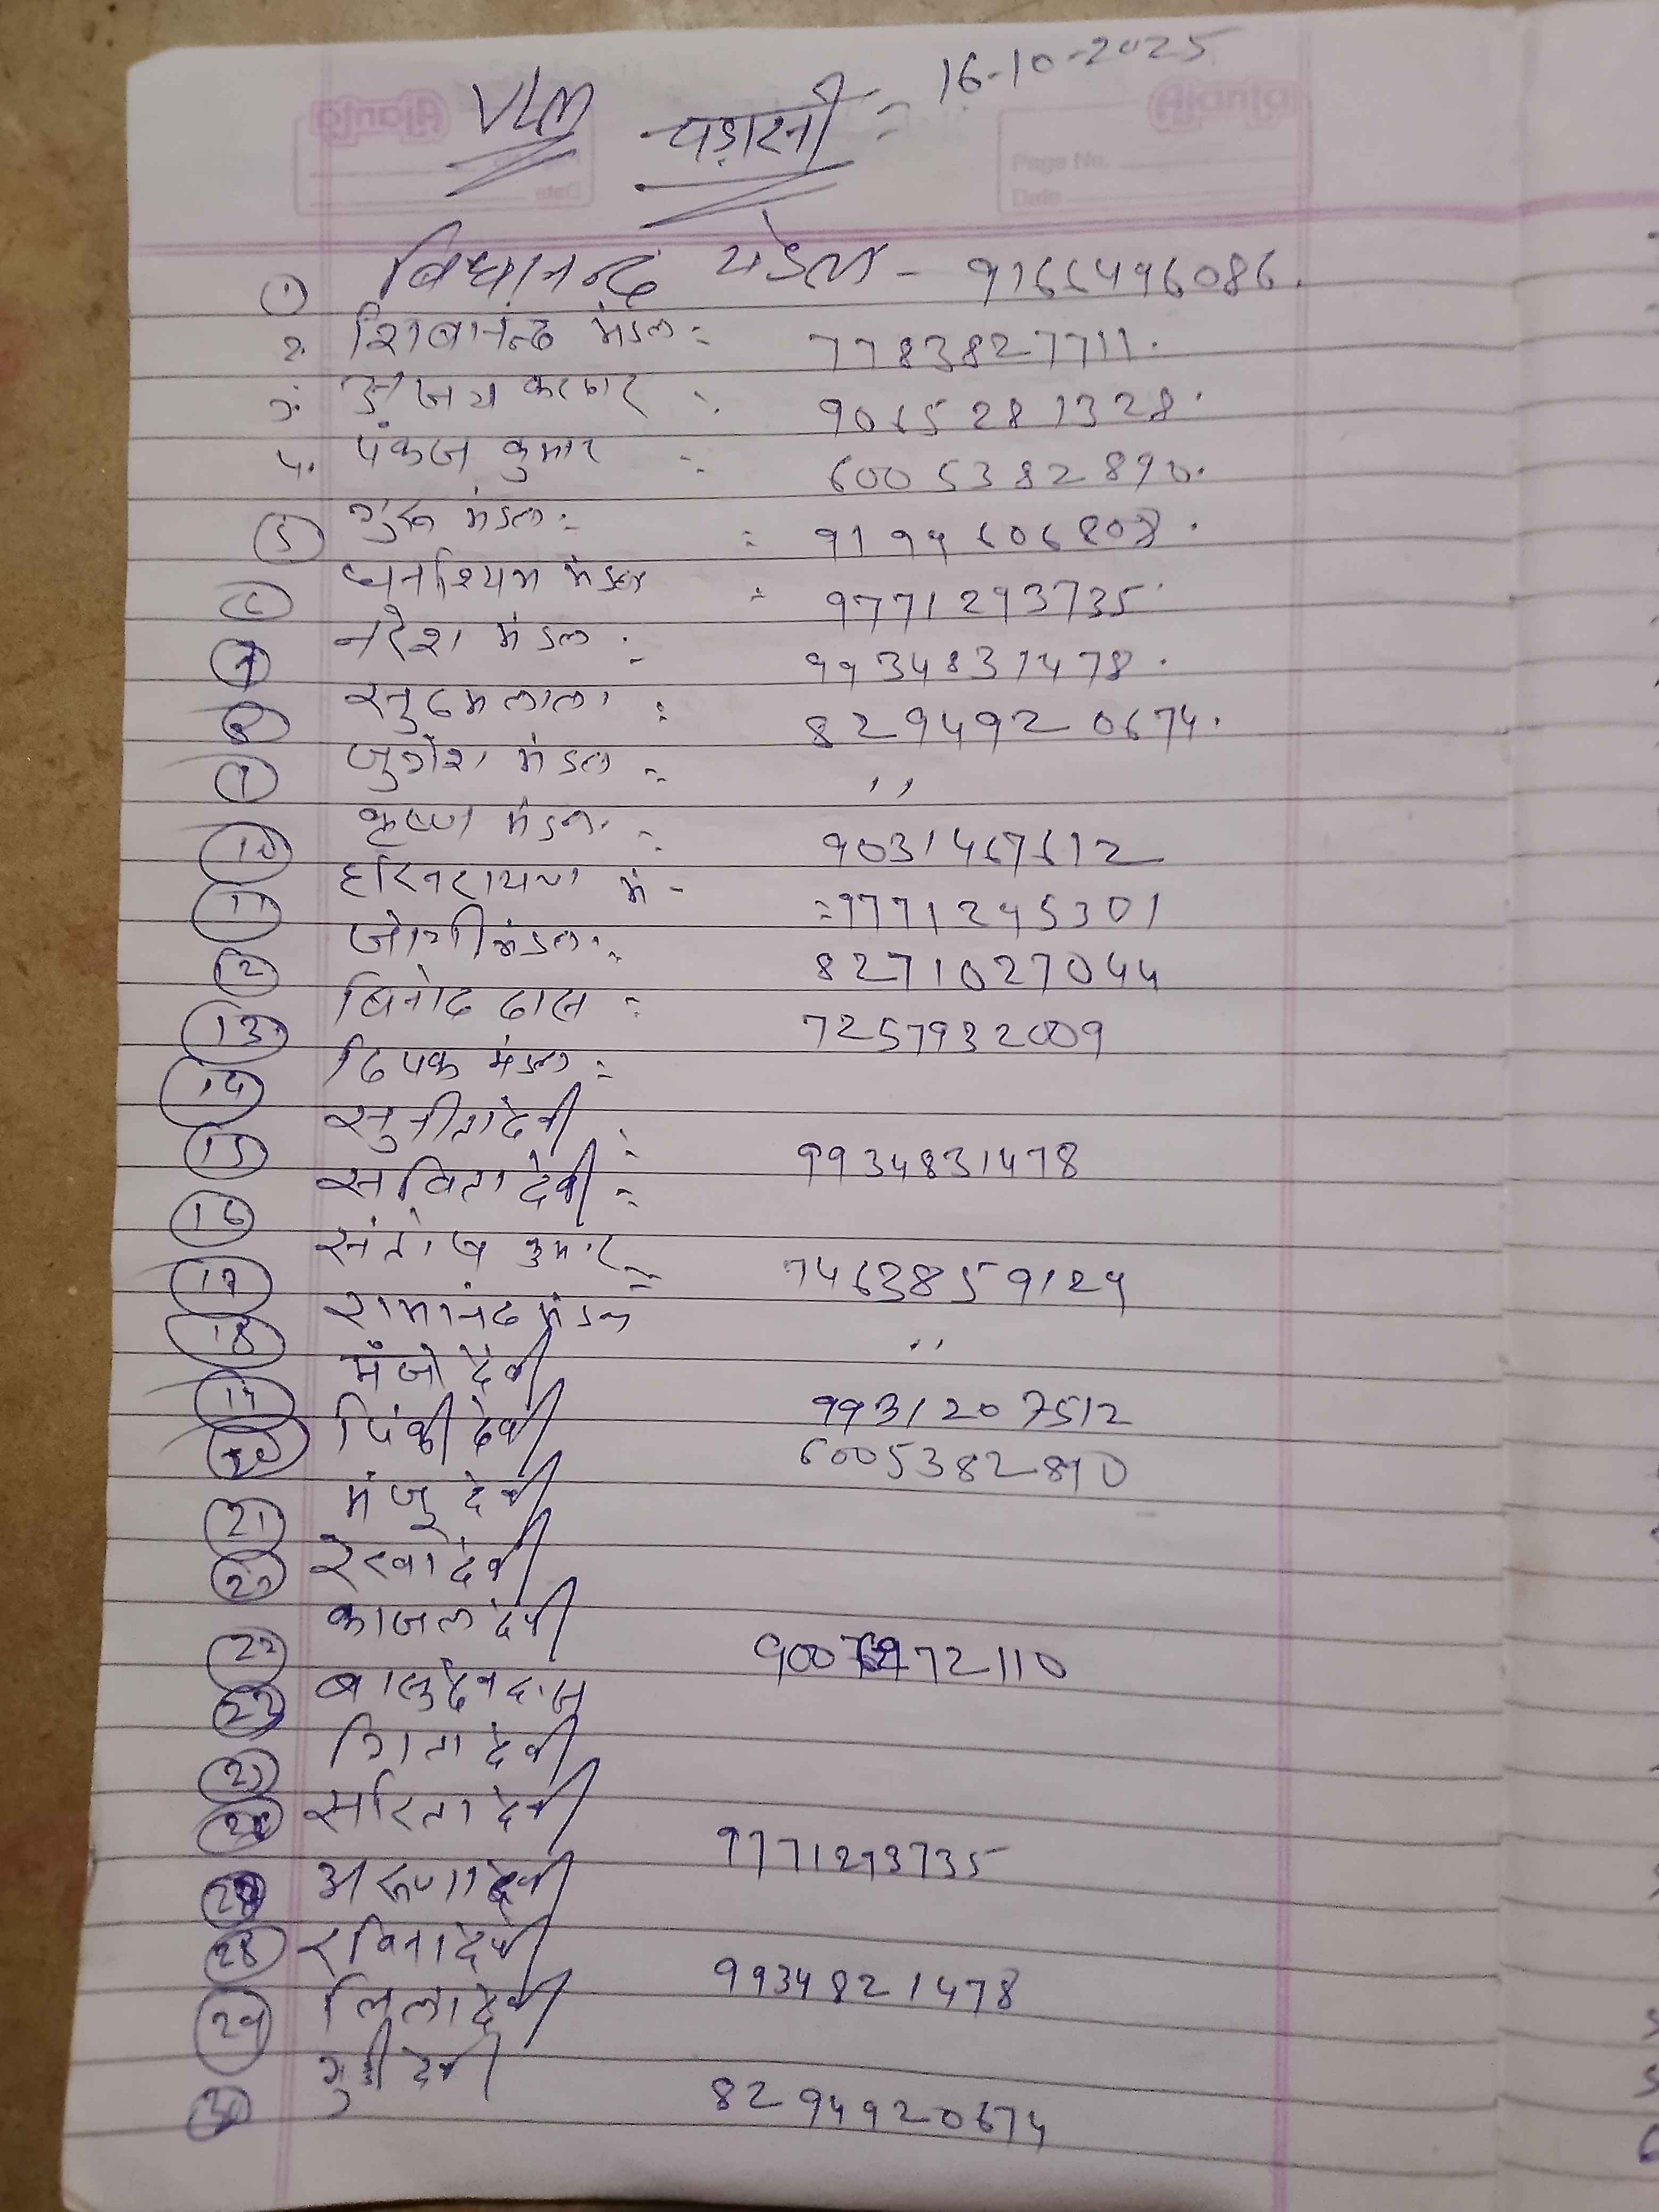 16-10-2025
VLM पड़ासी =
① बिधानन्द मंडल - 9166496086.
2. शिबानन्द मंडल = 7783827711.
3. अजय कुमार = 9065281328.
4. पंकज कुमार = 6005382890.
⑤ गुरू मंडल = 9199606808.
⑥ घनश्यिम मंडल = 9771293735
⑦ नरेश मंडल = 9934831478.
⑧ = 8294920674.
⑨ जुगेश मंडल = ,,
⑩ कृष्ण मंडल = 9031467612
⑪ हरिनरायण मं - = 9771295301
⑫ जोगी मंडल = 8271027044
⑬ बिनोद दास = 7257932009
⑭ दिपक मंडल =
⑮ सुनीता देवी = 9934831478
⑯ सविता देवी =
⑰ संतोष कुमार = 7463859129
⑱ रामानंद मंडल ,,
⑲ मंजो देवी 9931207512
⑳ पिंकी देवी 6005382890
21 मंजु देवी
22 रेखा देवी
22 काजल देवी 972110
23 बासुदेव दास
गिता देवी
सरिता देवी 9771293735
अरूणा देवी
28 रविना देवी 9934821478
29 लिला देवी
30 गुड़ी देवी 8294920674